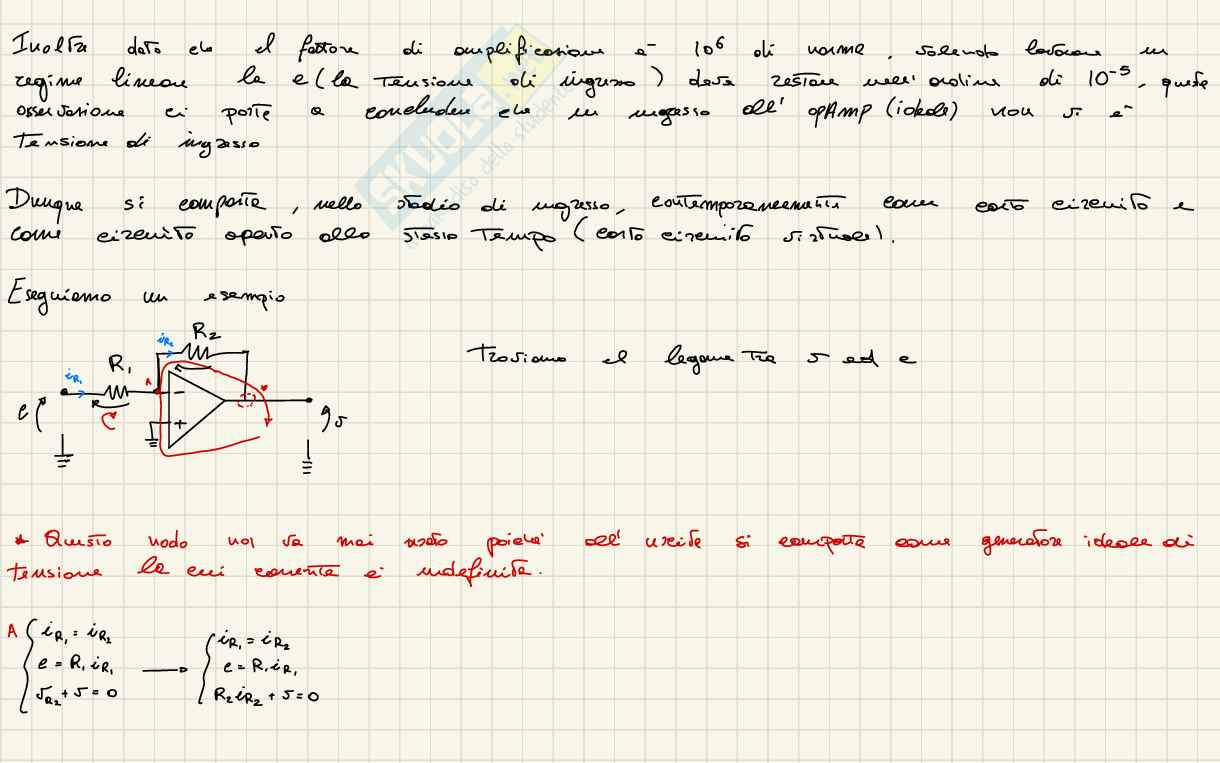 Inoltre dato che il fattore di amplificazione è 10⁶ di norma, volendo lavorare in
regime lineare la e (la tensione di ingresso) deve restare nell' ordine di 10⁻⁵, queste
osservazione ci porta a concludere che in ingresso all' opAmp (ideale) non vi è
Tensione di ingresso
Dunque si comporta, nello stadio di ingresso, contemporaneamente come corto circuito e
come circuito aperto allo stesso Tempo (corto circuito virtuale).
Eseguiamo un esempio
Troviamo il legame Tra v ed e
R₂
i_R₂
R₁
i_R₁
A
*
e
v
* Questo nodo non va mai usato poiché all' uscita si comporta come generatore ideale di
tensione la cui corrente è indefinita.
A { i_R₁ = i_R₂ → { i_R₁ = i_R₂
e = R₁ i_R₁ e = R₁ i_R₁
v_R₂ + v = 0 R₂ i_R₂ + v = 0